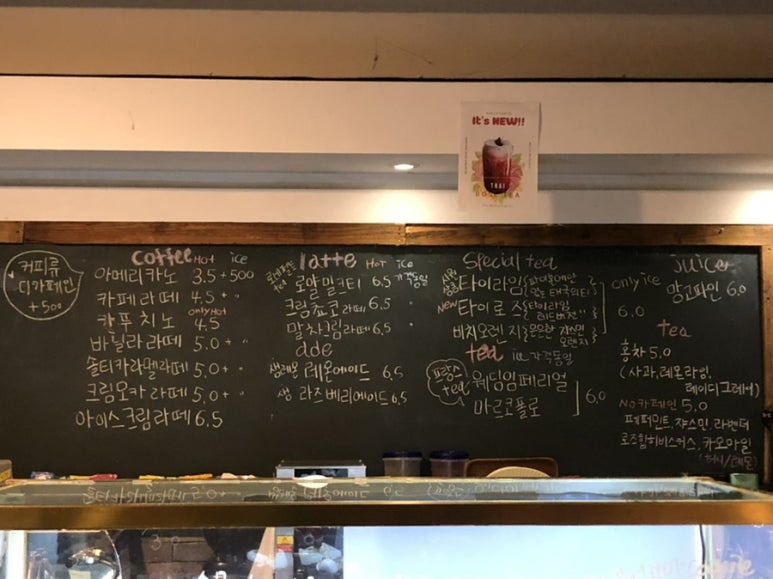 It's NEW!!
THAI
커피류
디카페인
+500
coffee HOT ice
아메리카노 3.5 +500
카페라떼 4.5 + "
only HOT
카푸치노 4.5
바닐라라떼 5.0 + "
솔티카라멜라떼 5.0 + "
크림모카라떼 5.0 + "
아이스크림라떼 6.5
latte HOT ice
로얄밀크티 6.5 가격동일
크림쵸코라떼 6.5 "
말차크림라떼 6.5 "
ade
생레몬 레몬에이드 6.5
생 라즈베리에이드 6.5
Special tea
타이라임
NEW 타이로즈
only ice
6.0
비치오렌지 은은한 쟈스민 오렌지
tea ice 가격동일
프랑스 tea
웨딩임페리얼
마르코폴로
6.0
juice
망고파인 6.0
tea
홍차 5.0
(사과,레몬라임,
레이디그레이)
No카페인 5.0
페퍼민트, 쟈스민, 라벤더
로즈힙히비스커스, 카모마일